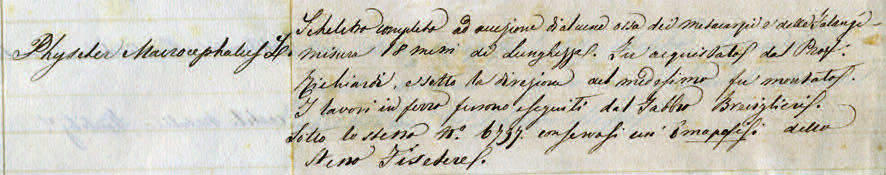 Scheletro completo ad eccezione di alcune ossa dei metacarpi e delle falangi
Physeter Macrocephalus L. misura 18 metri di lunghezza. Fu acquistato dal Prof.
Richiardi, e sotto la direzione del medesimo fu montato.
I lavori in ferro furono eseguiti dal Fabbro
Sotto lo stesso N.º 6737 conservasi un' Emapofisi dello
stesso Fisetere.